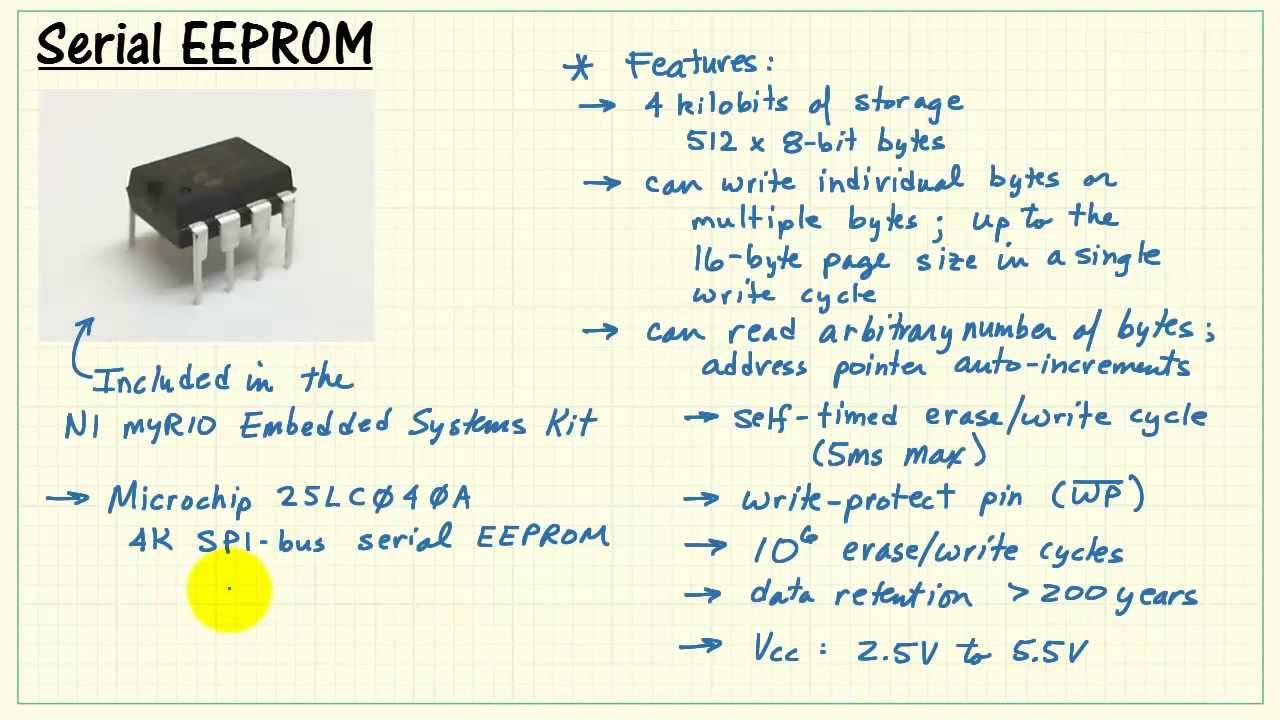 Serial EEPROM
Included in the
NI myRIO Embedded Systems Kit
→ Microchip 25LC040A
4K SPI-bus serial EEPROM
* Features:
→ 4 kilobits of storage
512 x 8-bit bytes
→ can write individual bytes or
multiple bytes; up to the
16-byte page size in a single
write cycle
→ can read arbitrary number of bytes;
address pointer auto-increments
→ self-timed erase/write cycle
(5ms max)
→ write-protect pin (W̅P̅)
→ 10⁶ erase/write cycles
→ data retention > 200 years
→ Vcc : 2.5V to 5.5V